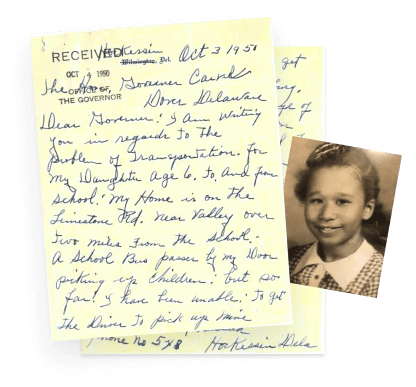 Hockessin
Wilmington, Del.
Oct 3 1950
RECEIVED
OCT 4 1950
OFFICE OF
THE GOVERNOR
The Hon. Governor Carvel
Dover Delaware
Dear Governor: I am writing
you in regards to the
problem of Transportation. for
my Daughter Age 6. to and from
school. My Home is on the
Limestone Rd. near Valley over
two miles from the school.-
A School Bus passes by my Door
picking up children; but so
far I have been unable. to get
the Driver to pick up mine
get
of
Phone No 5x8
Hockessin Dela